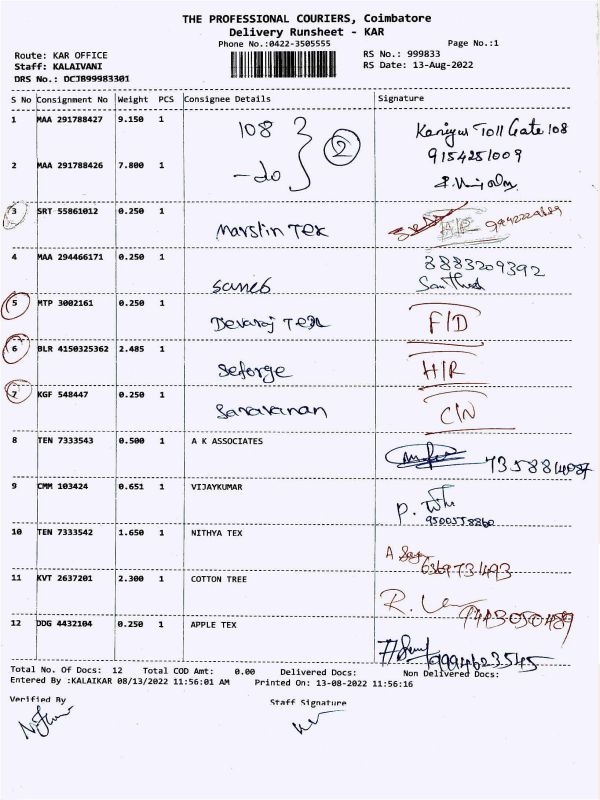 THE PROFESSIONAL COURIERS, Coimbatore
Delivery Runsheet - KAR
Phone No.:0422-3505555
Page No.:1
Route: KAR OFFICE
RS No.: 999833
Staff: KALAIVANI
RS Date: 13-Aug-2022
DRS No.: DCJ899983301
S No Consignment No Weight PCS Consignee Details Signature
1 MAA 291788427 9.150 1 108 Kaniyur Toll Gate 108
2 9154251009
2 MAA 291788426 7.800 1 -do
3 SRT 55861012 0.250 1 Marslin Tex
4 MAA 294466171 0.250 1 8883209392
Santhosh
5 MTP 3002161 0.250 1 Devaraj Tex F/D
6 BLR 4150325362 2.485 1 Seforge H/R
7 KGF 548447 0.250 1 Saravanan C/N
8 TEN 7333543 0.500 1 A K ASSOCIATES 7358814087
9 CMM 103424 0.651 1 VIJAYKUMAR P.
9500558860
10 TEN 7333542 1.650 1 NITHYA TEX A
6369731493
11 KVT 2637201 2.300 1 COTTON TREE R.
9443050489
12 DDG 4432104 0.250 1 APPLE TEX 9994623545
Total No. OF Docs: 12 Total COD Amt: 0.00 Delivered Docs: Non Delivered Docs:
Entered By :KALAIKAR 08/13/2022 11:56:01 AM Printed On: 13-08-2022 11:56:16
Verified By
Staff Signature